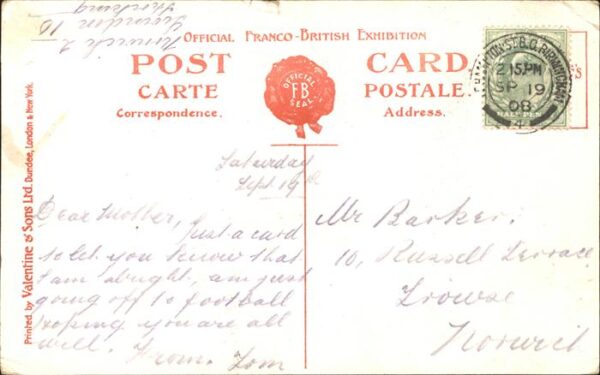 OFFICIAL FRANCO-BRITISH EXHIBITION
POST CARD
CARTE POSTALE
Correspondence. Address.
OFFICIAL
FB
SEAL
2 15 PM
SP 19
08
4
HALFPENNY
Printed by Valentine & Sons Ltd. Dundee, London & New York.
Norwich 2
Swindon 10
Saturday
Sept 19th
Dear Mother,
Just a card
to let you know that
I am alright, am just
going off to football
hoping you are all
well. From. Tom
Mr Barker.
10, Russell Terrace
Trowse
Norwich